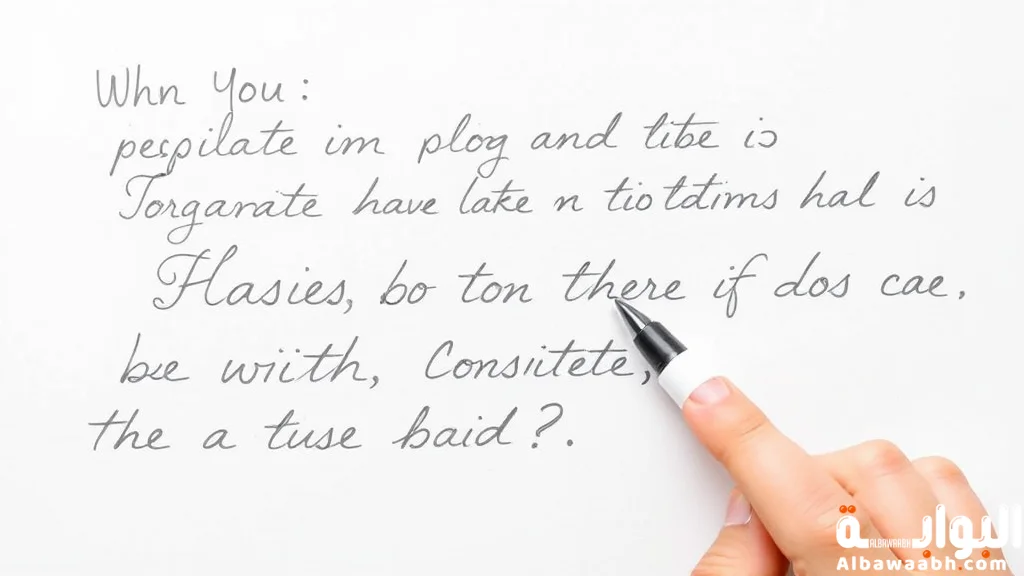 Whn You:
pespilate im plog and tibe is
Torganate have lake n tiotdims hal is
Hasies, bo ton there if dos cae.
be wiith, Consiitete,
the a tuse baid?.
البوابة
ALBAWAABH
Albawaabh.com